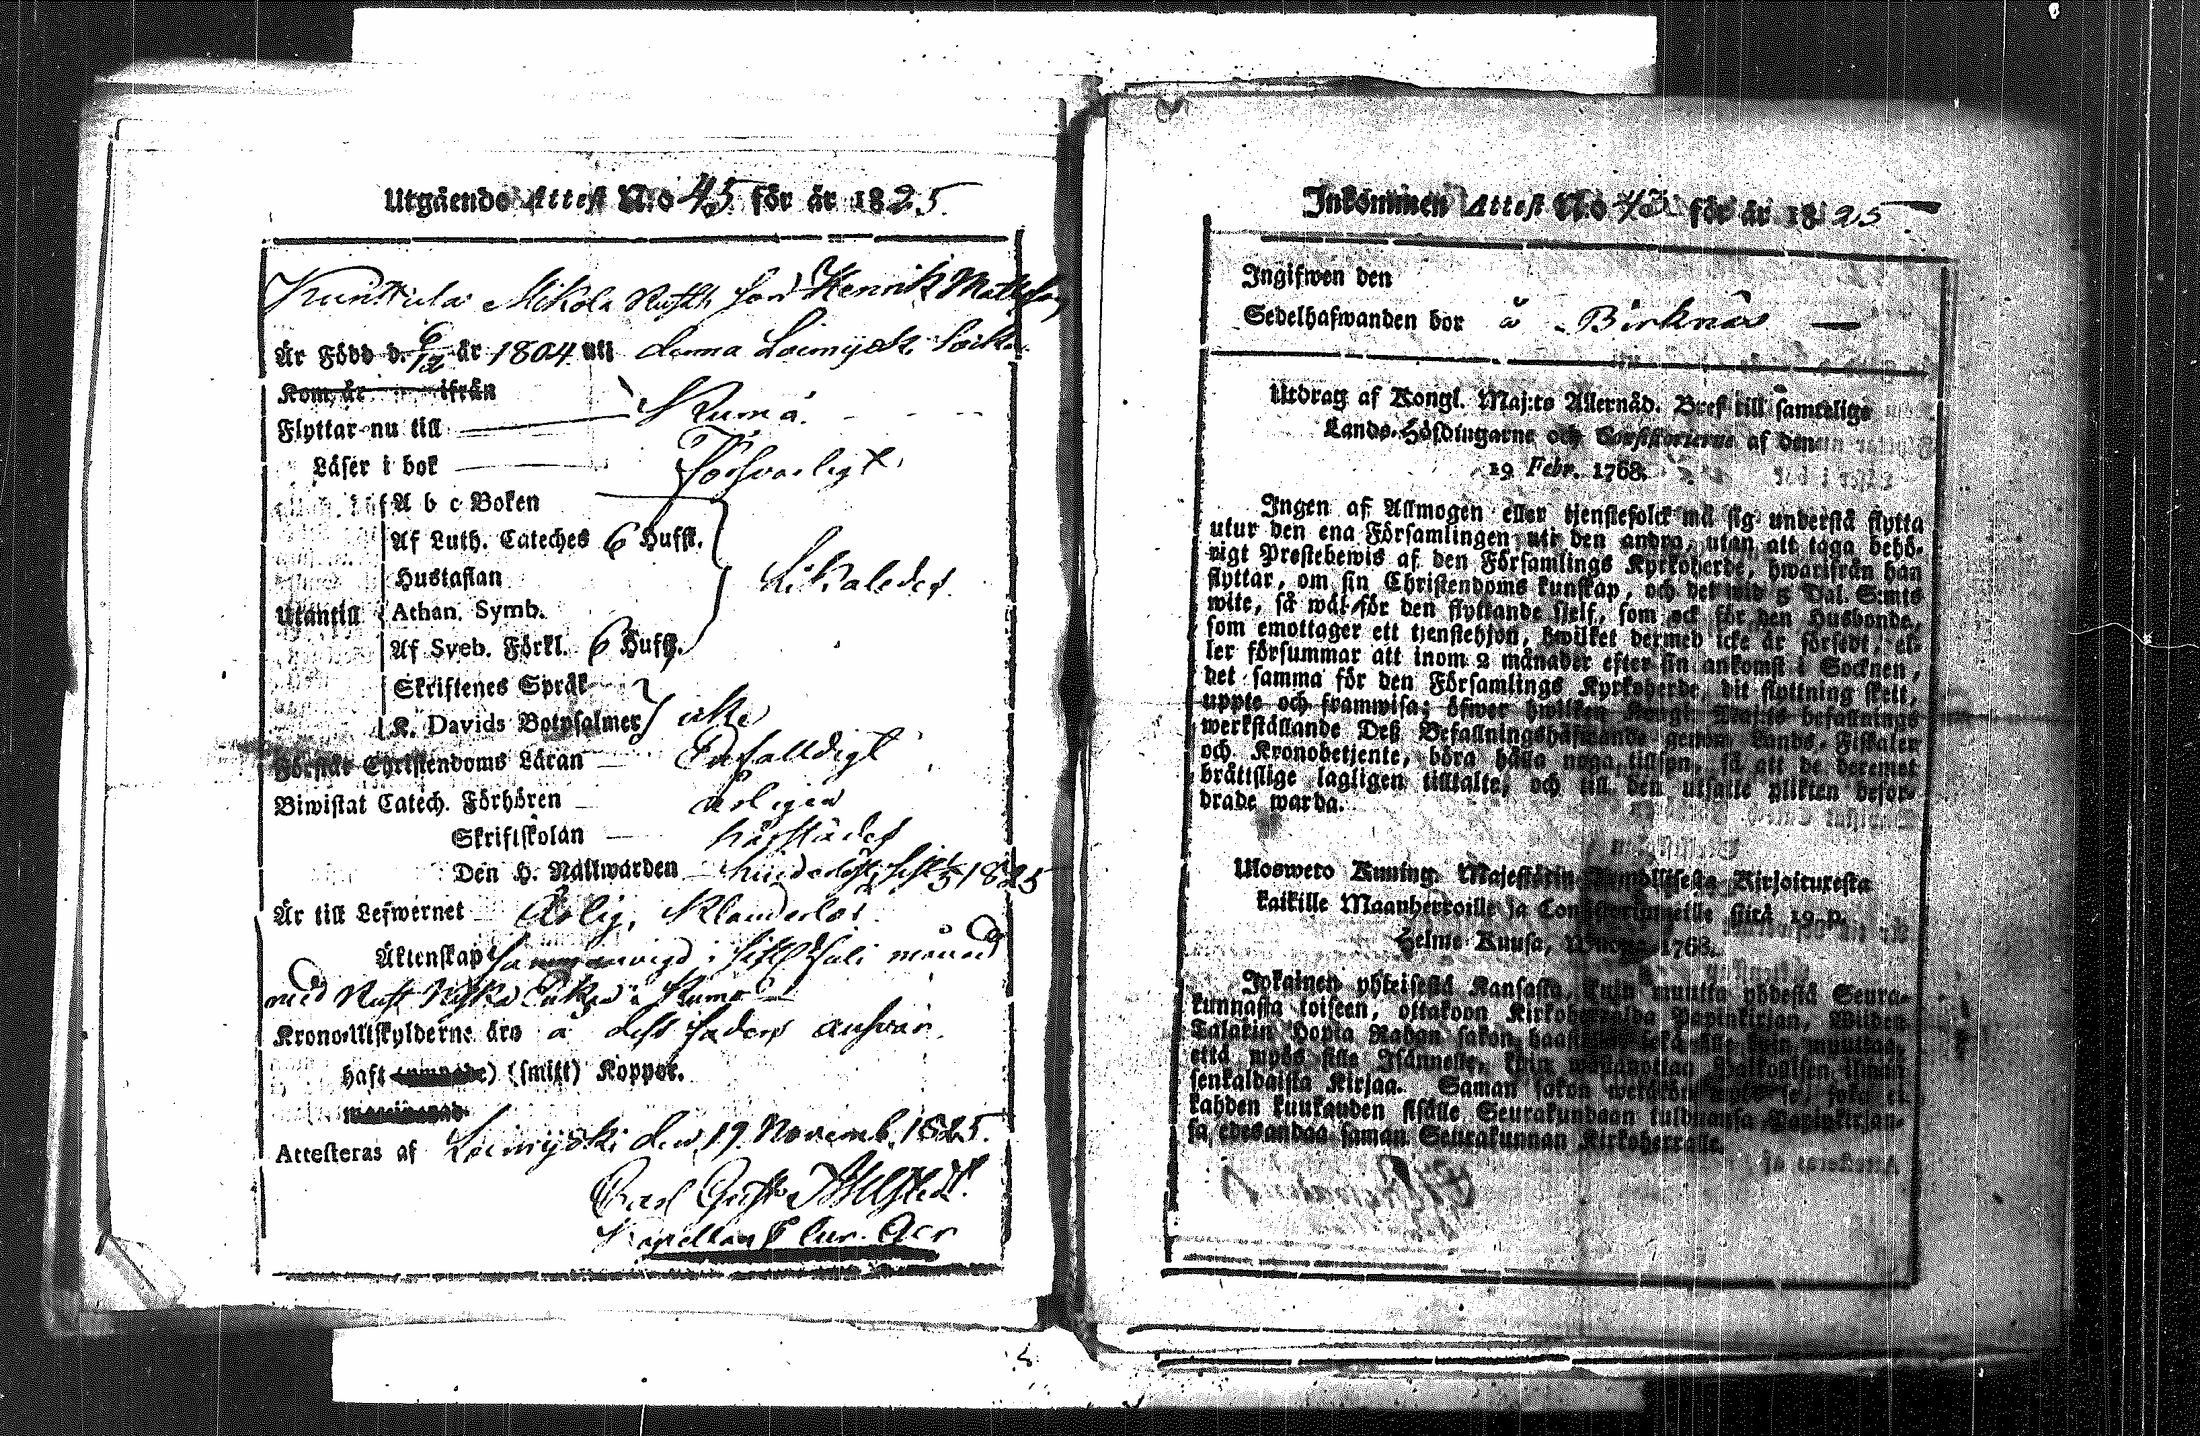 Utgående Attest N:o 45 för år 1825.
Kunttila Mikola Rusth. son Henrik Mattsson
Är Född d. 6/12 år 1804 uti denna Loimijoki Sockn
Kom år ifrån
Flyttar nu till Kumå.
Läser i bok Försvarligt
A b c Boken
Af Luth. Cateches 6 Hufst.
Hustaflan
Likaledes.
Utantill Athan. Symb.
Af Sveb. Förkl. 6 Hufst.
Skriftenes Språk
K. Davids Botpsalmer icke
Förstår Christendoms Läran Enfalldigt
Biwistat Catech. Förhören årligen
Skriftskolan härstädes
Den H. Nattwarden 1825
Är till Lefwernet Ärlig, Klanderlös
Äktenskap i sistl. Juli månad
med Rust. Enka i Kumo
Krono-Utskylderne äro å dess faders ansvar.
haft (smitt) Koppor.
Attesteras af Loimijoki den 19 Novemb. 1825.
Carl Gust.
Kapellan
Inkommen Attest N:o 43 för år 1825
Ingifwen den
Sedelhafwanden bor å Birknäs
Utdrag af Kongl. Maj:ts Allernåd. Bref till samtelige
Lands-Höfdingarne och Consistorierne af den
19 Febr. 1768.
Ingen af Allmogen eller tjenstefolck må sig understå flytta
utur den ena Församlingen uti den andra, utan att taga behö-
rigt Prestebewis af den Församlings Kyrkoherde, hwarifrån han
flyttar, om sin Christendoms kunskap, och det wid 5 Dal. S:mts
wite, så wäl för den flyttande sjelf, som ock för den Husbonde,
som emottager ett tjenstehjon, hwilket dermed icke är försedt, el-
ler försummar att inom 2 månader efter sin ankomst i Socknen,
det samma för den Församlings Kyrkoherde, dit flyttning skett,
uppte och framwisa; öfwer hwilken Kongl. Maj:ts befallnings
werkställande Deß Befallningshafwande genom Lands-Fiskaler
och Kronobetjente, böra hålla noga tillsyn, så att de deremot
bråttslige lagligen tilltalte, och till den utsatte plikten befor-
drade warda.
Ulosweto Kuning. Majestetin Armollisesta Kirjoituxesta
kaikille Maanherroille ja Consistoriumeille siitä 19. p.
Helme Kuusa, Wuonna 1768.
Jokainen yhteisestä Kansasta, kuin muutta yhdestä Seura-
kunnasta toiseen, ottakoon Kirkoherralda Papinkirjan, Wiiden
Talarin Hopia Rahan sakon haastolla sekä sille kuin muuttaa,
että myös sille Isännelle, kuin wastanottaa Palkollisen ilman
senkaldaista Kirjaa. Saman sakon wetäköön myös se, joka ei
kahden kuukauden sisälle Seurakundaan tulduansa Papinkirjan-
sa edesandaa saman Seurakunnan Kirkoherralle.